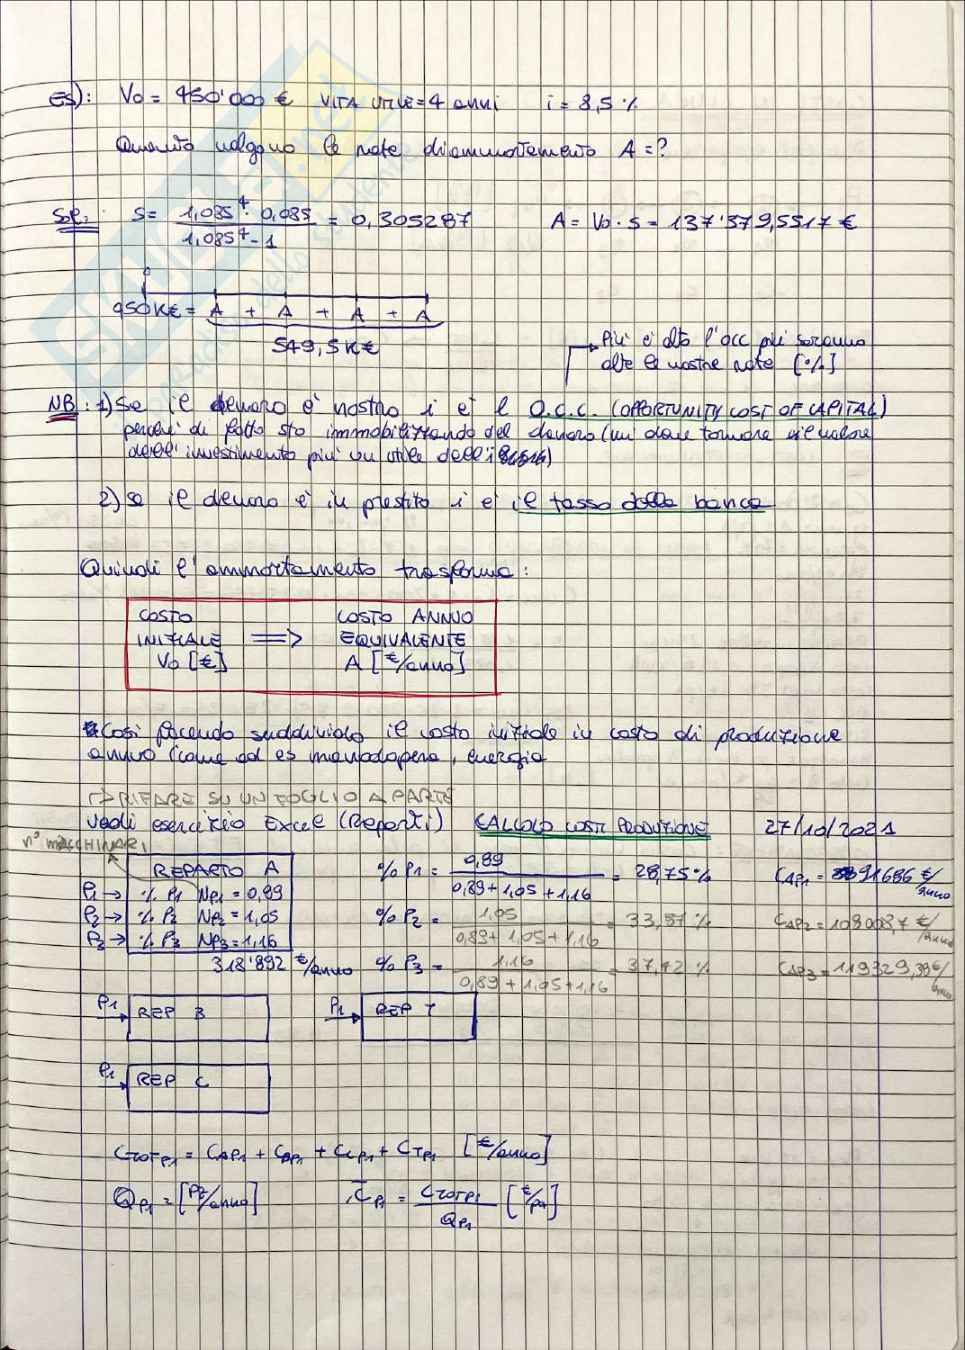 ES): V0 = 450'000 € VITA UTILE = 4 anni i = 8,5 %
Quanto valgono le rate di ammortamento A = ?
Sol: S = 1,085⁴ · 0,085 / 1,085⁴ - 1 = 0,305287 A = V0 · S = 137'379,5517 €
0
450K€ = A + A + A + A
549,5K€
Più è alto l'occ più saranno
alte le nostre rate [%]
NB: 1) Se il denaro è nostro i è l O.C.C. (OPPORTUNITY COST OF CAPITAL)
perché di fatto sto immobilizzando del denaro (mi deve tornare il valore
dell'investimento più un utile dell'i)
2) se il denaro è in prestito i è il tasso della banca
Quindi l'ammortamento trasforma:
COSTO INIZIALE V0 [€] => COSTO ANNUO EQUIVALENTE A [€/anno]
Così facendo suddivido il costo iniziale in costo di produzione
annuo (come ad es manodopera, energia
↳ RIFARE SU UN FOGLIO A PARTE
Vedi esercizio Excel (Reparti) CALCOLO COSTI PRODUZIONE 27/10/2021
n° macchinari
REPARTO A
P1 → % P1 Np1 = 0,89 % P1 = 0,89 / 0,89 + 1,05 + 1,16 = 28,75 % CAP1 = 91686 €/anno
P2 → % P2 Np2 = 1,05 % P2 = 1,05 / 0,89 + 1,05 + 1,16 = 33,87 % CAP2 = 108008,7 €/anno
P3 → % P3 Np3 = 1,16 % P3 = 1,16 / 0,89 + 1,05 + 1,16 = 37,42 % CAP3 = 119329,39 €/anno
318'892 €/anno
P1 → REP B P1 → REP T
P1 → REP C
CTOTP1 = CAP1 + CBP1 + CCP1 + CTP1 [€/anno]
QP1 = [Pz/anno] C̄P1 = CTOTP1 / QP1 [€/pz]